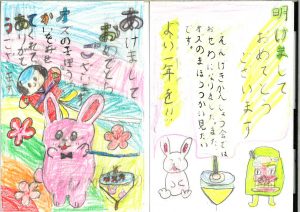 明けまして
おめでとう
ございます
えんげきかんしょう会では
おせわになりました。また、
オズのまほうつかい見たい
です。
より一年を!!
あけまして
おめでとう
オズのまほう
くれて
ありがとう